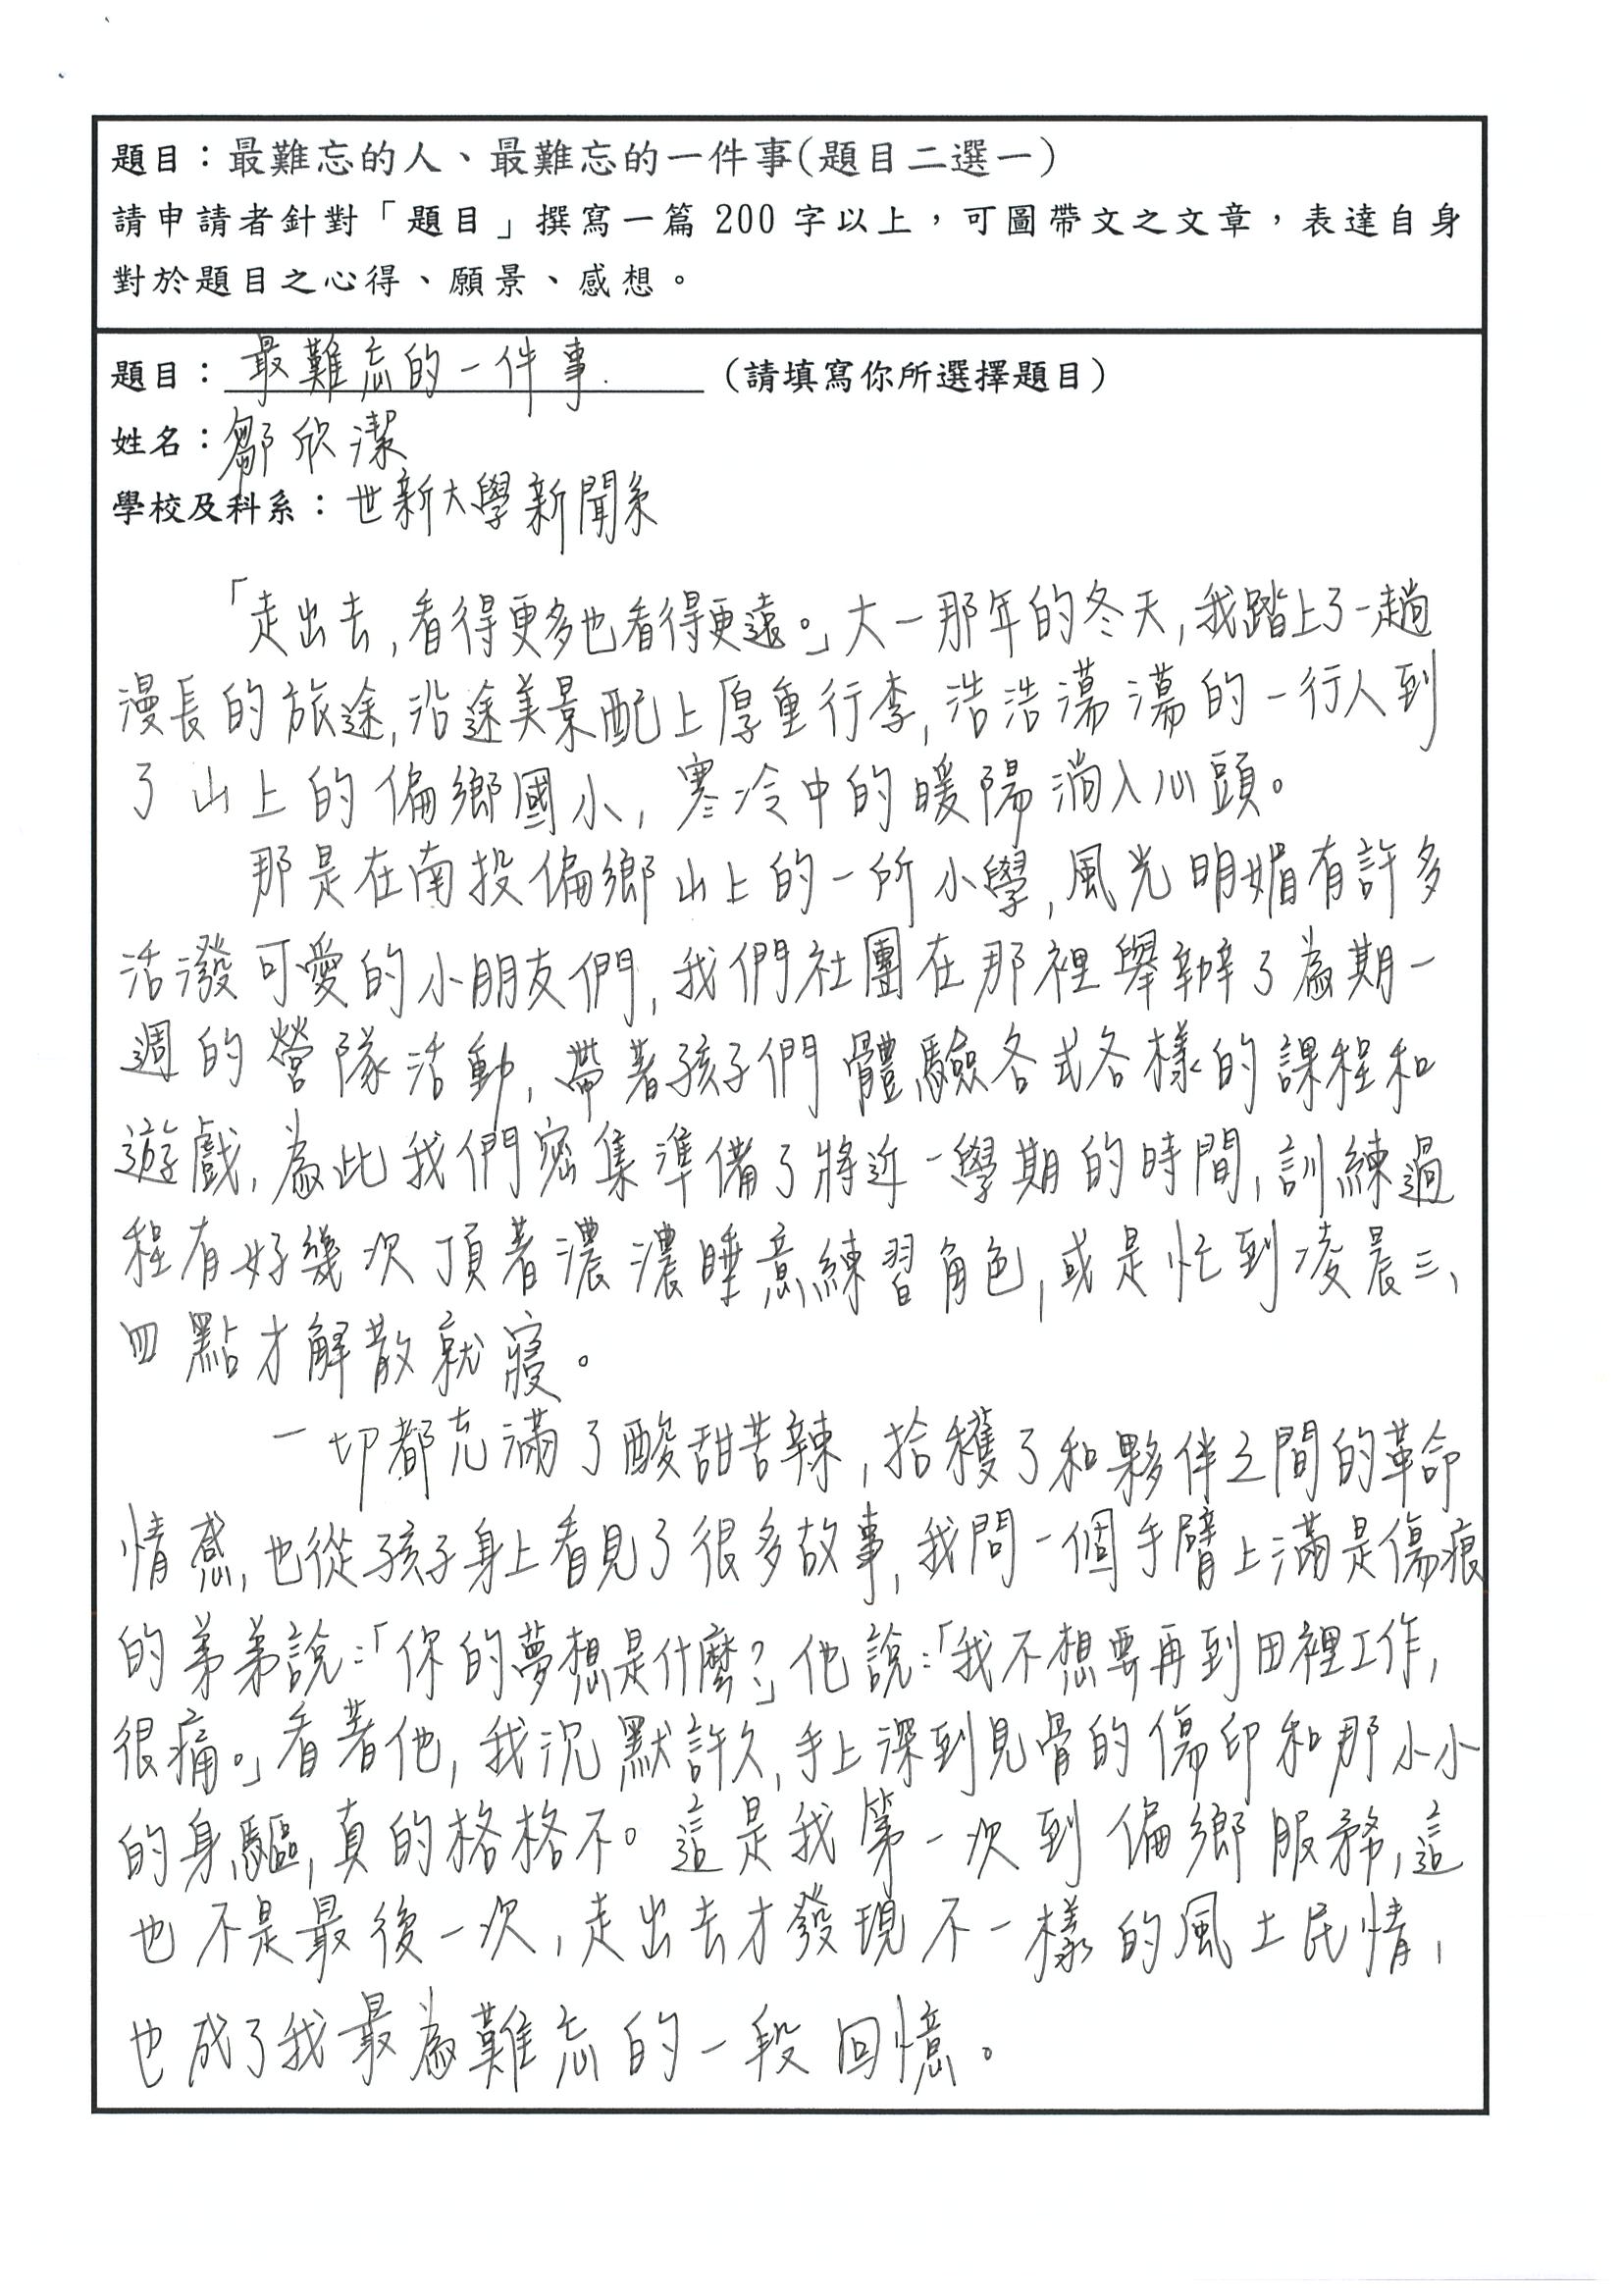 題目：最難忘的人、最難忘的一件事(題目二選一)
請申請者針對「題目」撰寫一篇 200 字以上，可圖帶文之文章，表達自身
對於題目之心得、願景、感想。
題目：最難忘的一件事.（請填寫你所選擇題目）
姓名：鄒欣潔
學校及科系：世新大學新聞系
「走出去,看得更多也看得更遠。」大一那年的冬天,我踏上了一趟
漫長的旅途,沿途美景配上厚重行李,浩浩蕩蕩的一行人到
了山上的偏鄉國小,寒冷中的暖陽淌入心頭。
那是在南投偏鄉山上的一所小學,風光明媚有許多
活潑可愛的小朋友們,我們社團在那裡舉辦了為期一
週的營隊活動,帶著孩子們體驗各式各樣的課程和
遊戲,為此我們密集準備了將近一學期的時間,訓練過
程有好幾次頂著濃濃睡意練習角色,或是忙到凌晨三、
四點才解散就寢。
一切都充滿了酸甜苦辣,拾穫了和夥伴之間的革命
情感,也從孩子身上看見了很多故事,我問一個手臂上滿是傷痕
的弟弟說:「你的夢想是什麼?」他說:「我不想要再到田裡工作,
很痛。」看著他,我沉默許久,手上深到見骨的傷印和那小小
的身驅,真的格格不。這是我第一次到偏鄉服務,這
也不是最後一次,走出去才發現不一樣的風土民情,
也成了我最為難忘的一段回憶。